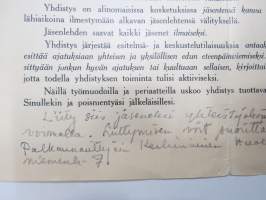 Yhdistys on alinomaisissa kosketuksissa jäsentensä kanssa
lähiaikoina ilmestymään alkavan jäsenlehtensä välityksellä.
Jäsenlehden saavat kaikki jäsenet ilmaiseksi.
Yhdistys järjestää esitelmä- ja keskustelutilaisuuksia antaak
esittää ajatuksiaan yhteisen ja yksilöllisen edun eteenpäinviemiseksi.
nittypään jonkun hyvän ajatuksen tai kuultuaan sellaisen, kirjoittai
jotta todella yhdistyksen toiminta tulisi aktiiviseksi.
Näillä työmuodoilla ja periaatteilla uskoo yhdistys tuottava
Sinullekin ja poisnentyäsi jälkeläisillesi.
Liity siis jäseneksi yhteistyön
voimalla. Liittymisen voit suorittaa
Palkannauttijain Keskinäinen
niemenk. 7.